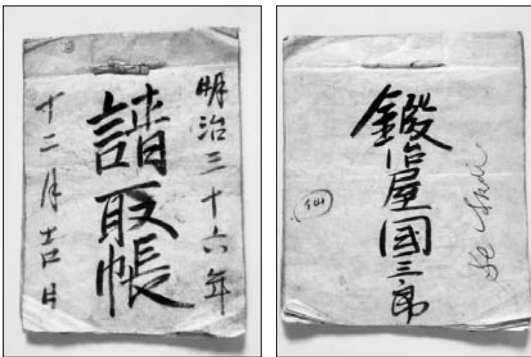 明治三十六年
請取帳
十二月吉日
鍛冶屋國三郎
仙